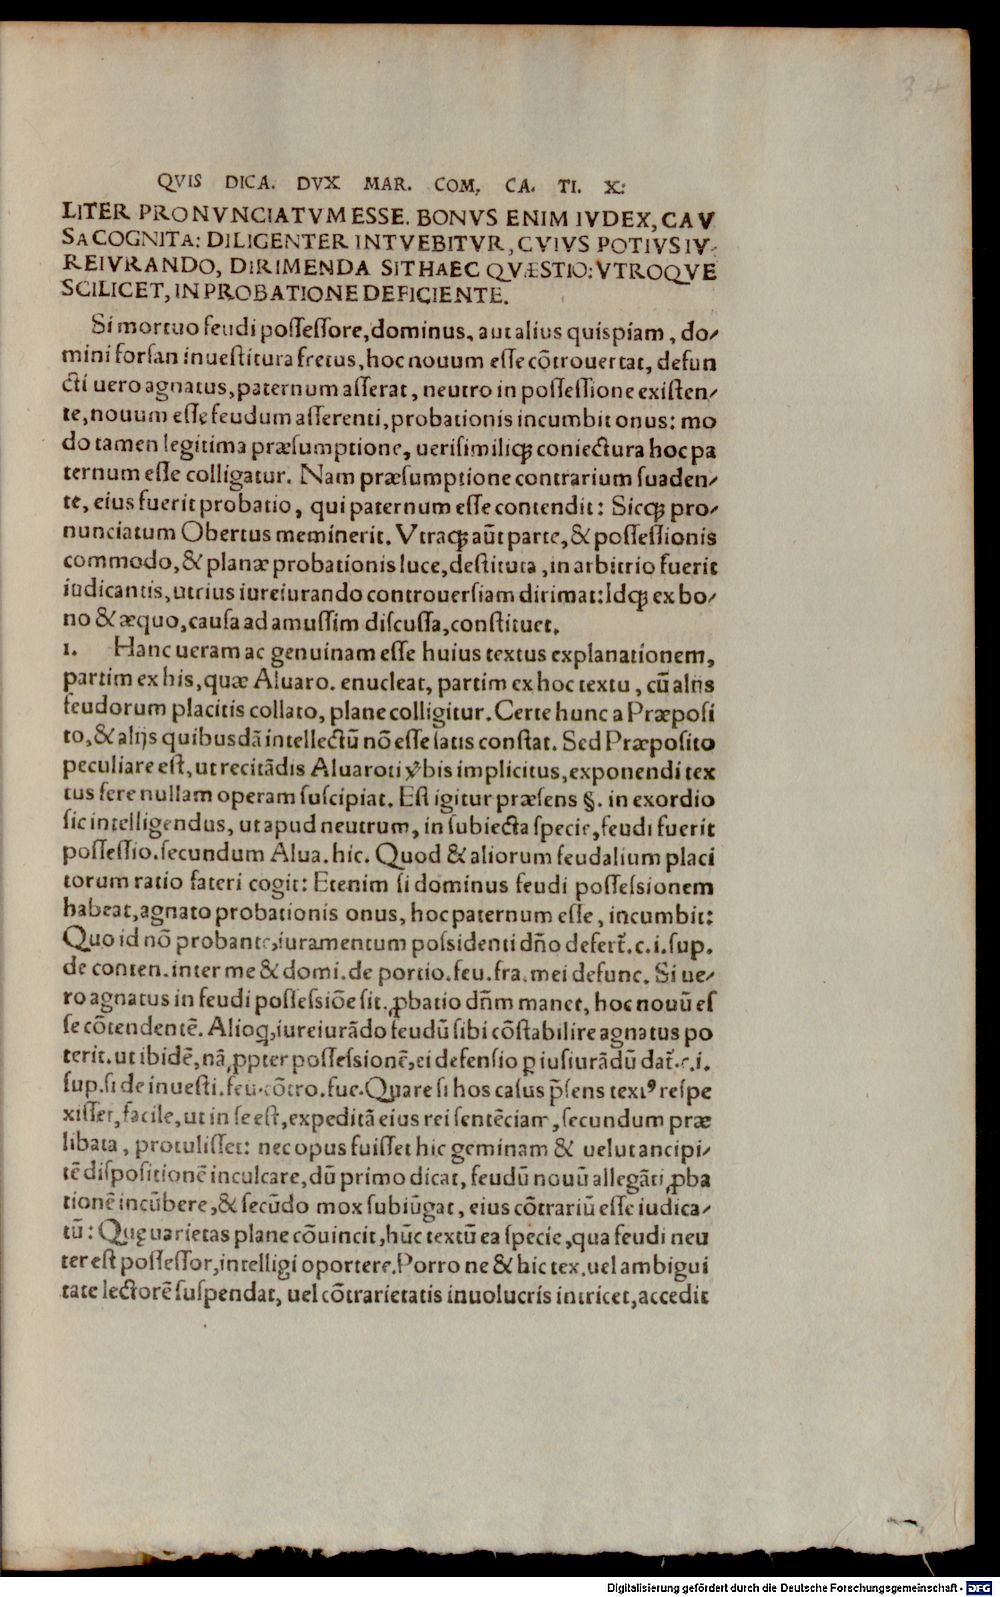 34
QVIS DICA. DVX MAR. COM, CA. TI. X:
LITER PRONVNCIATVM ESSE. BONVS ENIM IVDEX, CAV
SA COGNITA: DILIGENTER INTVEBITVR, CVIVS POTIVS IV-
REIVRANDO, DIRIMENDA SIT HAEC QVÆSTIO: VTROQVE
SCILICET, IN PROBATIONE DEFICIENTE.
Si mortuo feudi poſſeſſore, dominus, aut alius quiſpiam, do-
mini forſan inueſtitura fretus, hoc nouum eſſe cōtrouertat, defun
cti uero agnatus, paternum aſſerat, neutro in poſſeſſione exiſten-
te, nouum eſſe feudum aſſerenti, probationis incumbit onus: mo
do tamen legitima præſumptione, ueriſimiliq; coniectura hoc pa
ternum eſſe colligatur. Nam præſumptione contrarium ſuaden-
te, eius fuerit probatio, qui paternum eſſe contendit: Sicq; pro-
nunciatum Obertus meminerit. Vtraq; aūt parte, & poſſeſſionis
commodo, & planæ probationis luce, deſtituta, in arbitrio fuerit
iudicantis, utrius iureiurando controuerſiam dirimat: Idq; ex bo-
no & æquo, cauſa ad amuſſim diſcuſſa, conſtituet.
1. Hanc ueram ac genuinam eſſe huius textus explanationem,
partim ex his, quæ Aluaro. enucleat, partim ex hoc textu, cū alijs
feudorum placitis collato, plane colligitur. Certe hunc a Præpoſi
to, & alijs quibuſdā intellectū nō eſſe ſatis conſtat. Sed Præpoſito
peculiare eſt, ut recitādis Aluaroti v̄bis implicitus, exponendi tex
tus fere nullam operam ſuſcipiat. Eſt igitur præſens §. in exordio
ſic intelligendus, ut apud neutrum, in ſubiecta ſpecie, feudi fuerit
poſſeſſio. ſecundum Alua. hic. Quod & aliorum feudalium placi
torum ratio fateri cogit: Etenim ſi dominus feudi poſſeſsionem
habeat, agnato probationis onus, hoc paternum eſſe, incumbit:
Quo id nō probante, iuramentum poſsidenti dn̄o defert̄. c. i. ſup.
de conten. inter me & domi. de portio. feu. fra. mei defunc. Si ue-
ro agnatus in feudi poſſeſsiōe ſit, ꝓbatio dn̄m manet, hoc nouū eſ
ſe cōtendentē. Alioq, iureiurādo feudū ſibi cōſtabilire agnatus po
terit. ut ibidē, nā, ꝓpter poſſeſsionē, ei defenſio ꝑ iuſiurādū dat̄. c. i.
ſup. ſi de inueſti. feu. cōtro. fuc. Quare ſi hos caſus p̄ſens textꝰ reſpe
xiſſet, facile, ut in ſe eſt, expeditā eius rei ſentēciam, ſecundum præ
libata, protuliſſet: nec opus fuiſſet hic geminam & uelut ancipi-
tē diſpoſitionē inculcare, dū primo dicat, feudū nouū allegāti ꝓba
tionē incūbere, & ſecūdo mox ſubiūgat, eius cōtrariū eſſe iudica-
tū: Quę uarietas plane cōuincit, hūc textū ea ſpecie, qua feudi neu
ter eſt poſſeſſor, intelligi oportere. Porro ne & hic tex. uel ambigui
tate lectorē ſuſpendat, uel cōtrarietatis inuolucris intricet, accedit
Digitalisierung gefördert durch die Deutsche Forschungsgemeinschaft - DFG